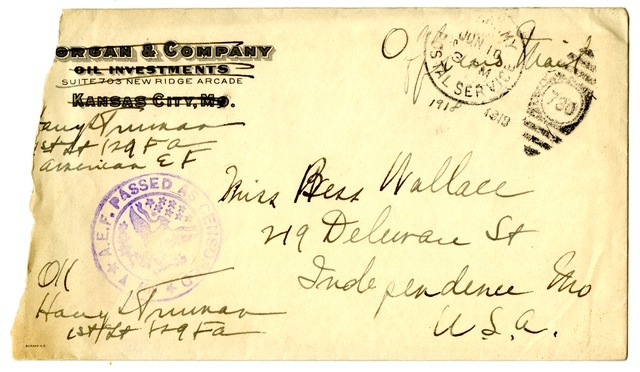 ORGAN & COMPANY
OIL INVESTMENTS
SUITE 703 NEW RIDGE ARCADE
KANSAS CITY, MO.
Harry S Truman
1st Lt 129 F A
American E F
Officers Mail
ARMY
JUN 10
M
POSTAL SERVICE
1918
1918
730
A.E.F. PASSED AS CENSORED
Miss Bess Wallace
219 Delaware St
Independence Mo
U.S.A.
OK
Harry S Truman
1st Lt 129 F A